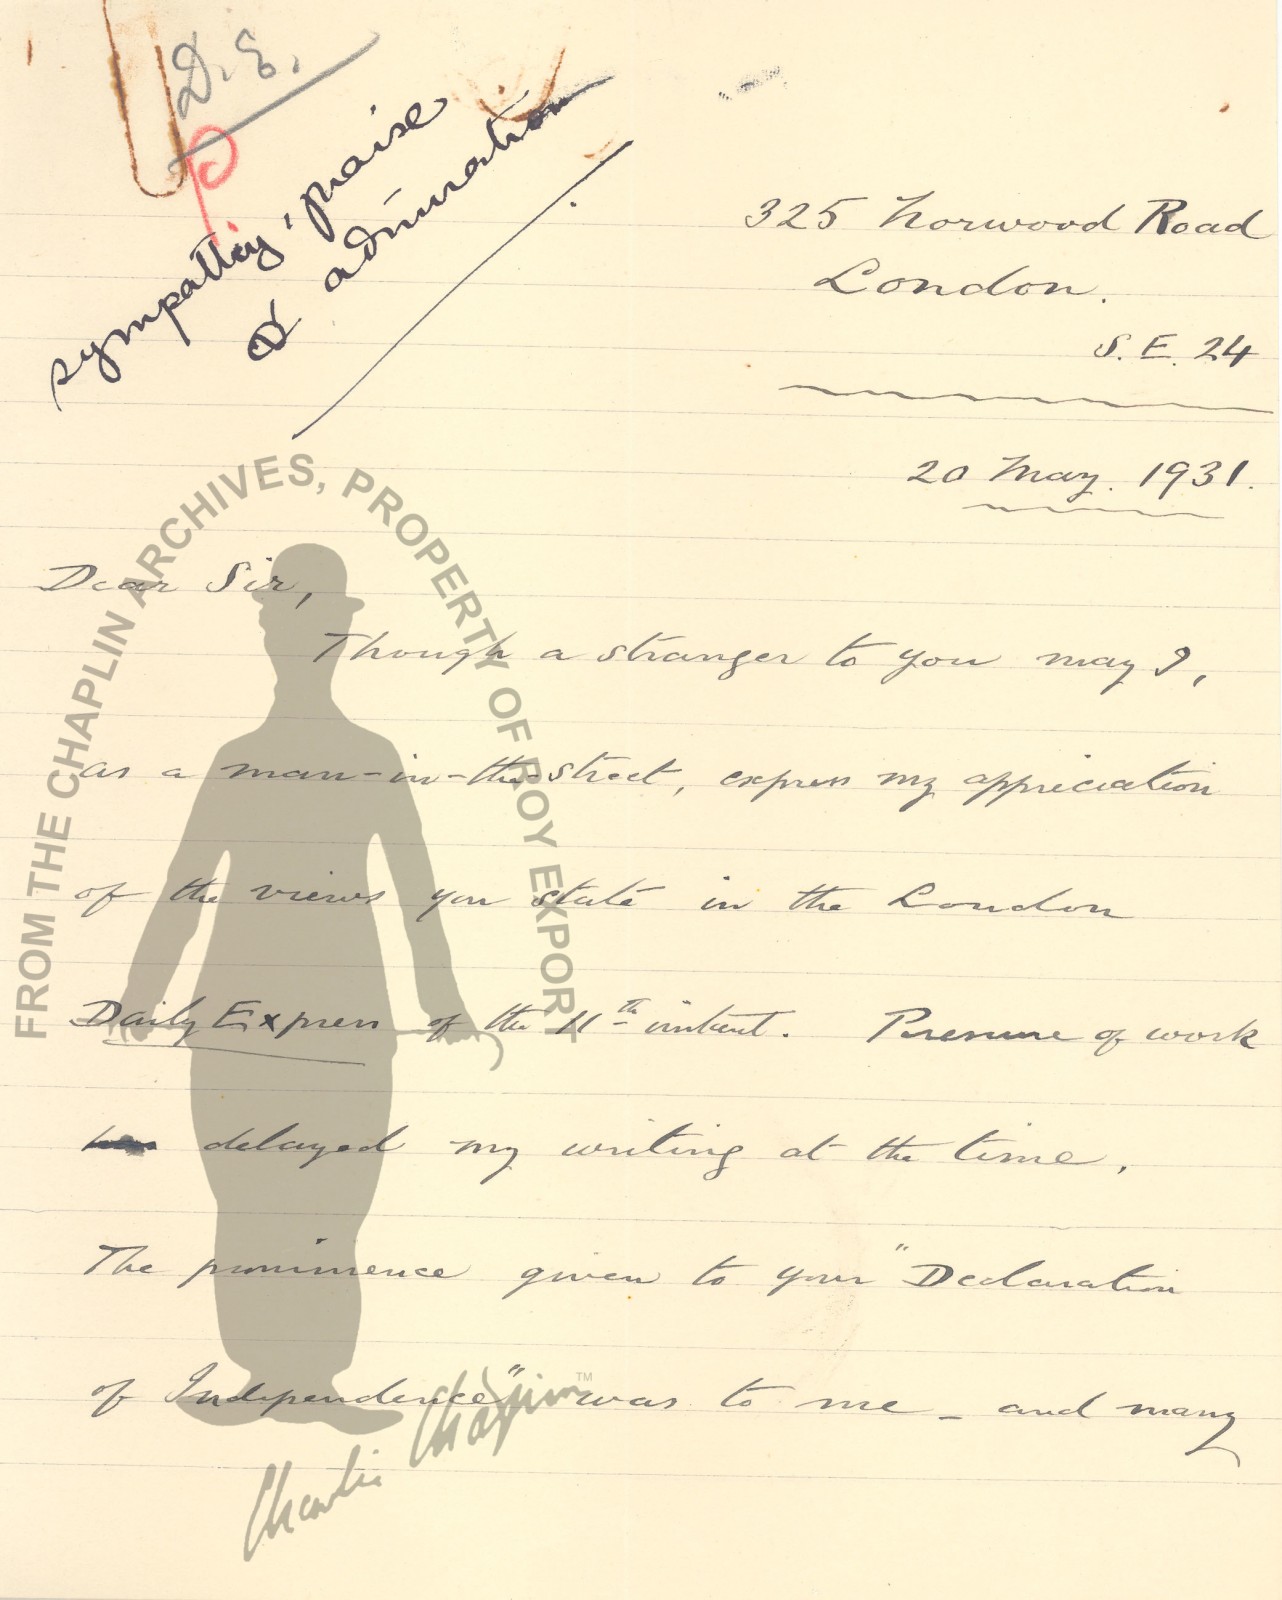 D. E.
sympathy, praise
& admiration
325 Norwood Road
London.
S. E. 24
20 May. 1931.
Dear Sir,
Though a stranger to you may I,
as a man-in-the-street, express my appreciation
of the views you state in the London
Daily Express of the 11th instant. Pressure of work
delayed my writing at the time.
The prominence given to your "Declaration
of Independence" was to me - and many
FROM THE CHAPLIN ARCHIVES, PROPERTY OF ROY EXPORT
Charlie Chaplin TM